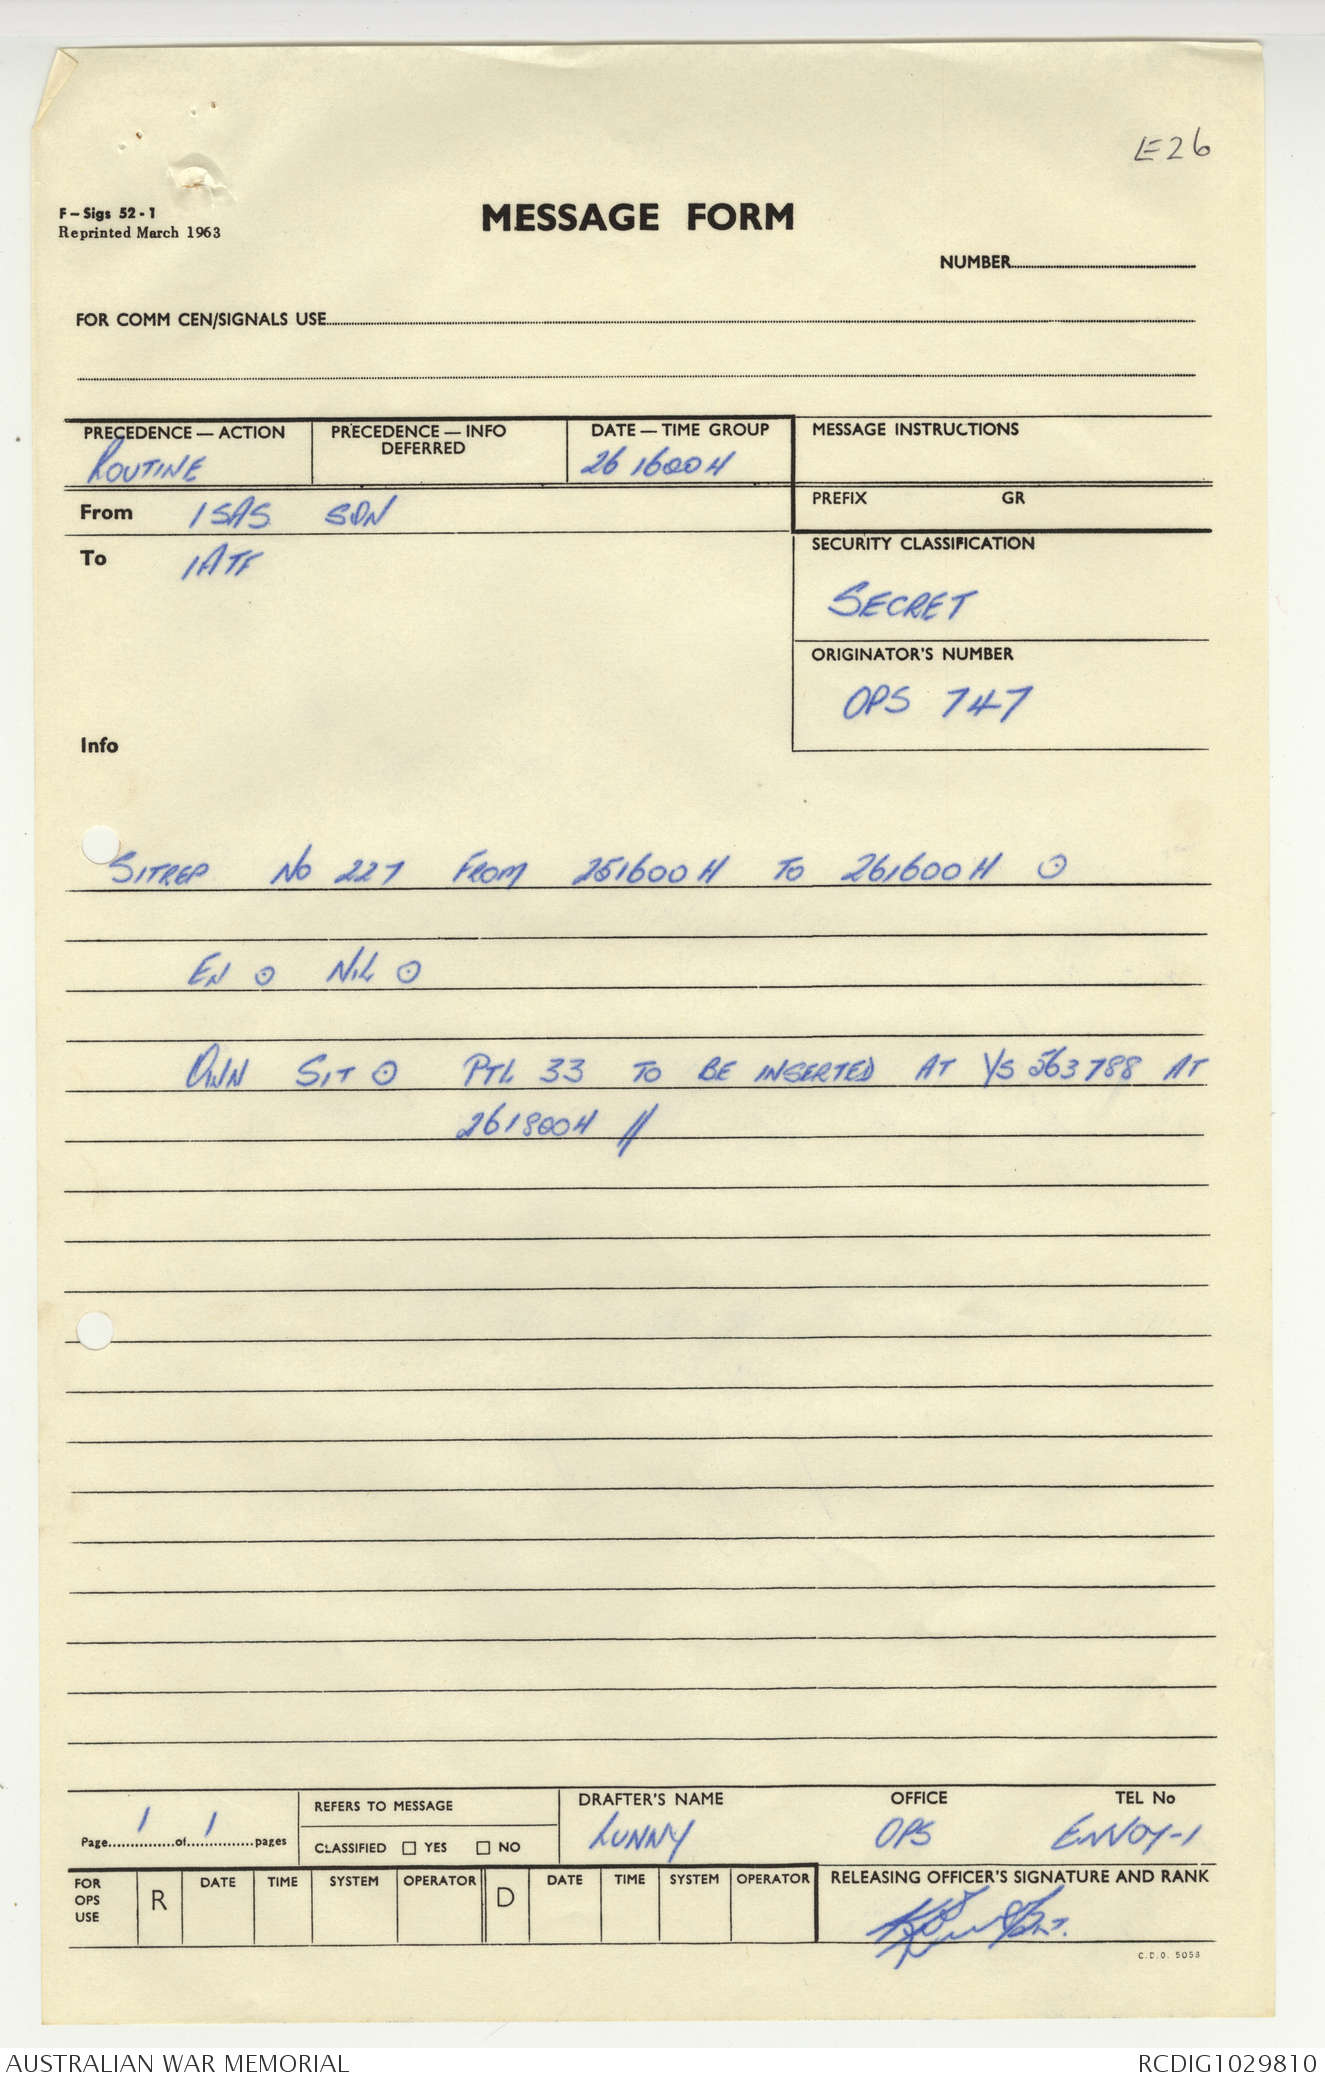 E26
F - Sigs 52 - 1
Reprinted March 1963
MESSAGE FORM
NUMBER
FOR COMM CEN/SIGNALS USE
PRECEDENCE — ACTION
ROUTINE
PRECEDENCE — INFO
DEFERRED
DATE — TIME GROUP
261600H
MESSAGE INSTRUCTIONS
From 1 SAS SQN
PREFIX GR
To 1ATF
SECURITY CLASSIFICATION
SECRET
ORIGINATOR'S NUMBER
OPS 747
Info
SITREP No 227 FROM 251600H TO 261600H ⊙
EN ⊙ NIL ⊙
OWN SIT ⊙ PTL 33 TO BE INSERTED AT YS 563788 AT
261800H //
Page 1 of 1 pages
REFERS TO MESSAGE
CLASSIFIED ☐ YES ☐ NO
DRAFTER'S NAME
LUNNY
OFFICE
OPS
TEL No
ENVOY-1
FOR
OPS
USE
R
DATE TIME SYSTEM OPERATOR
D
DATE TIME SYSTEM OPERATOR
RELEASING OFFICER'S SIGNATURE AND RANK
C.D.O. 5053
AUSTRALIAN WAR MEMORIAL
RCDIG1029810